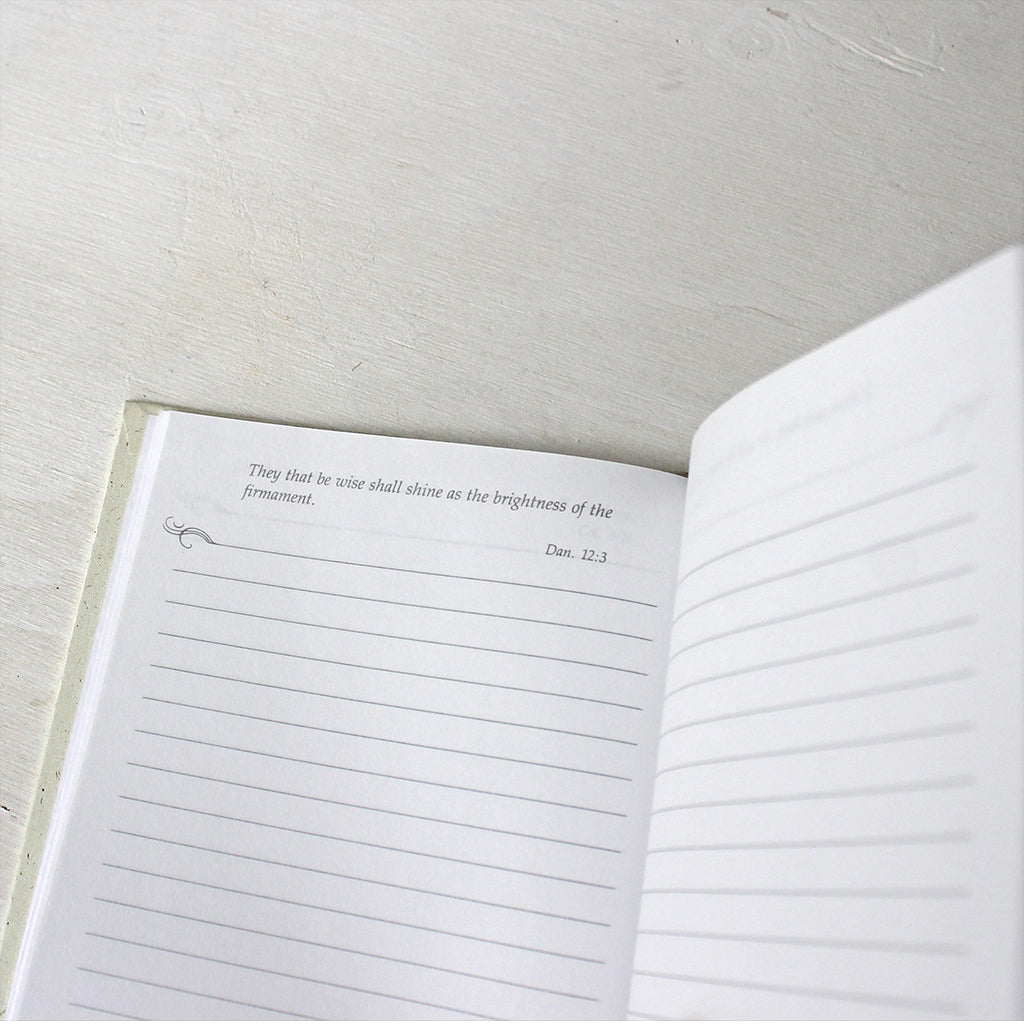 They that be wise shall shine as the brightness of the
firmament.
Dan. 12:3